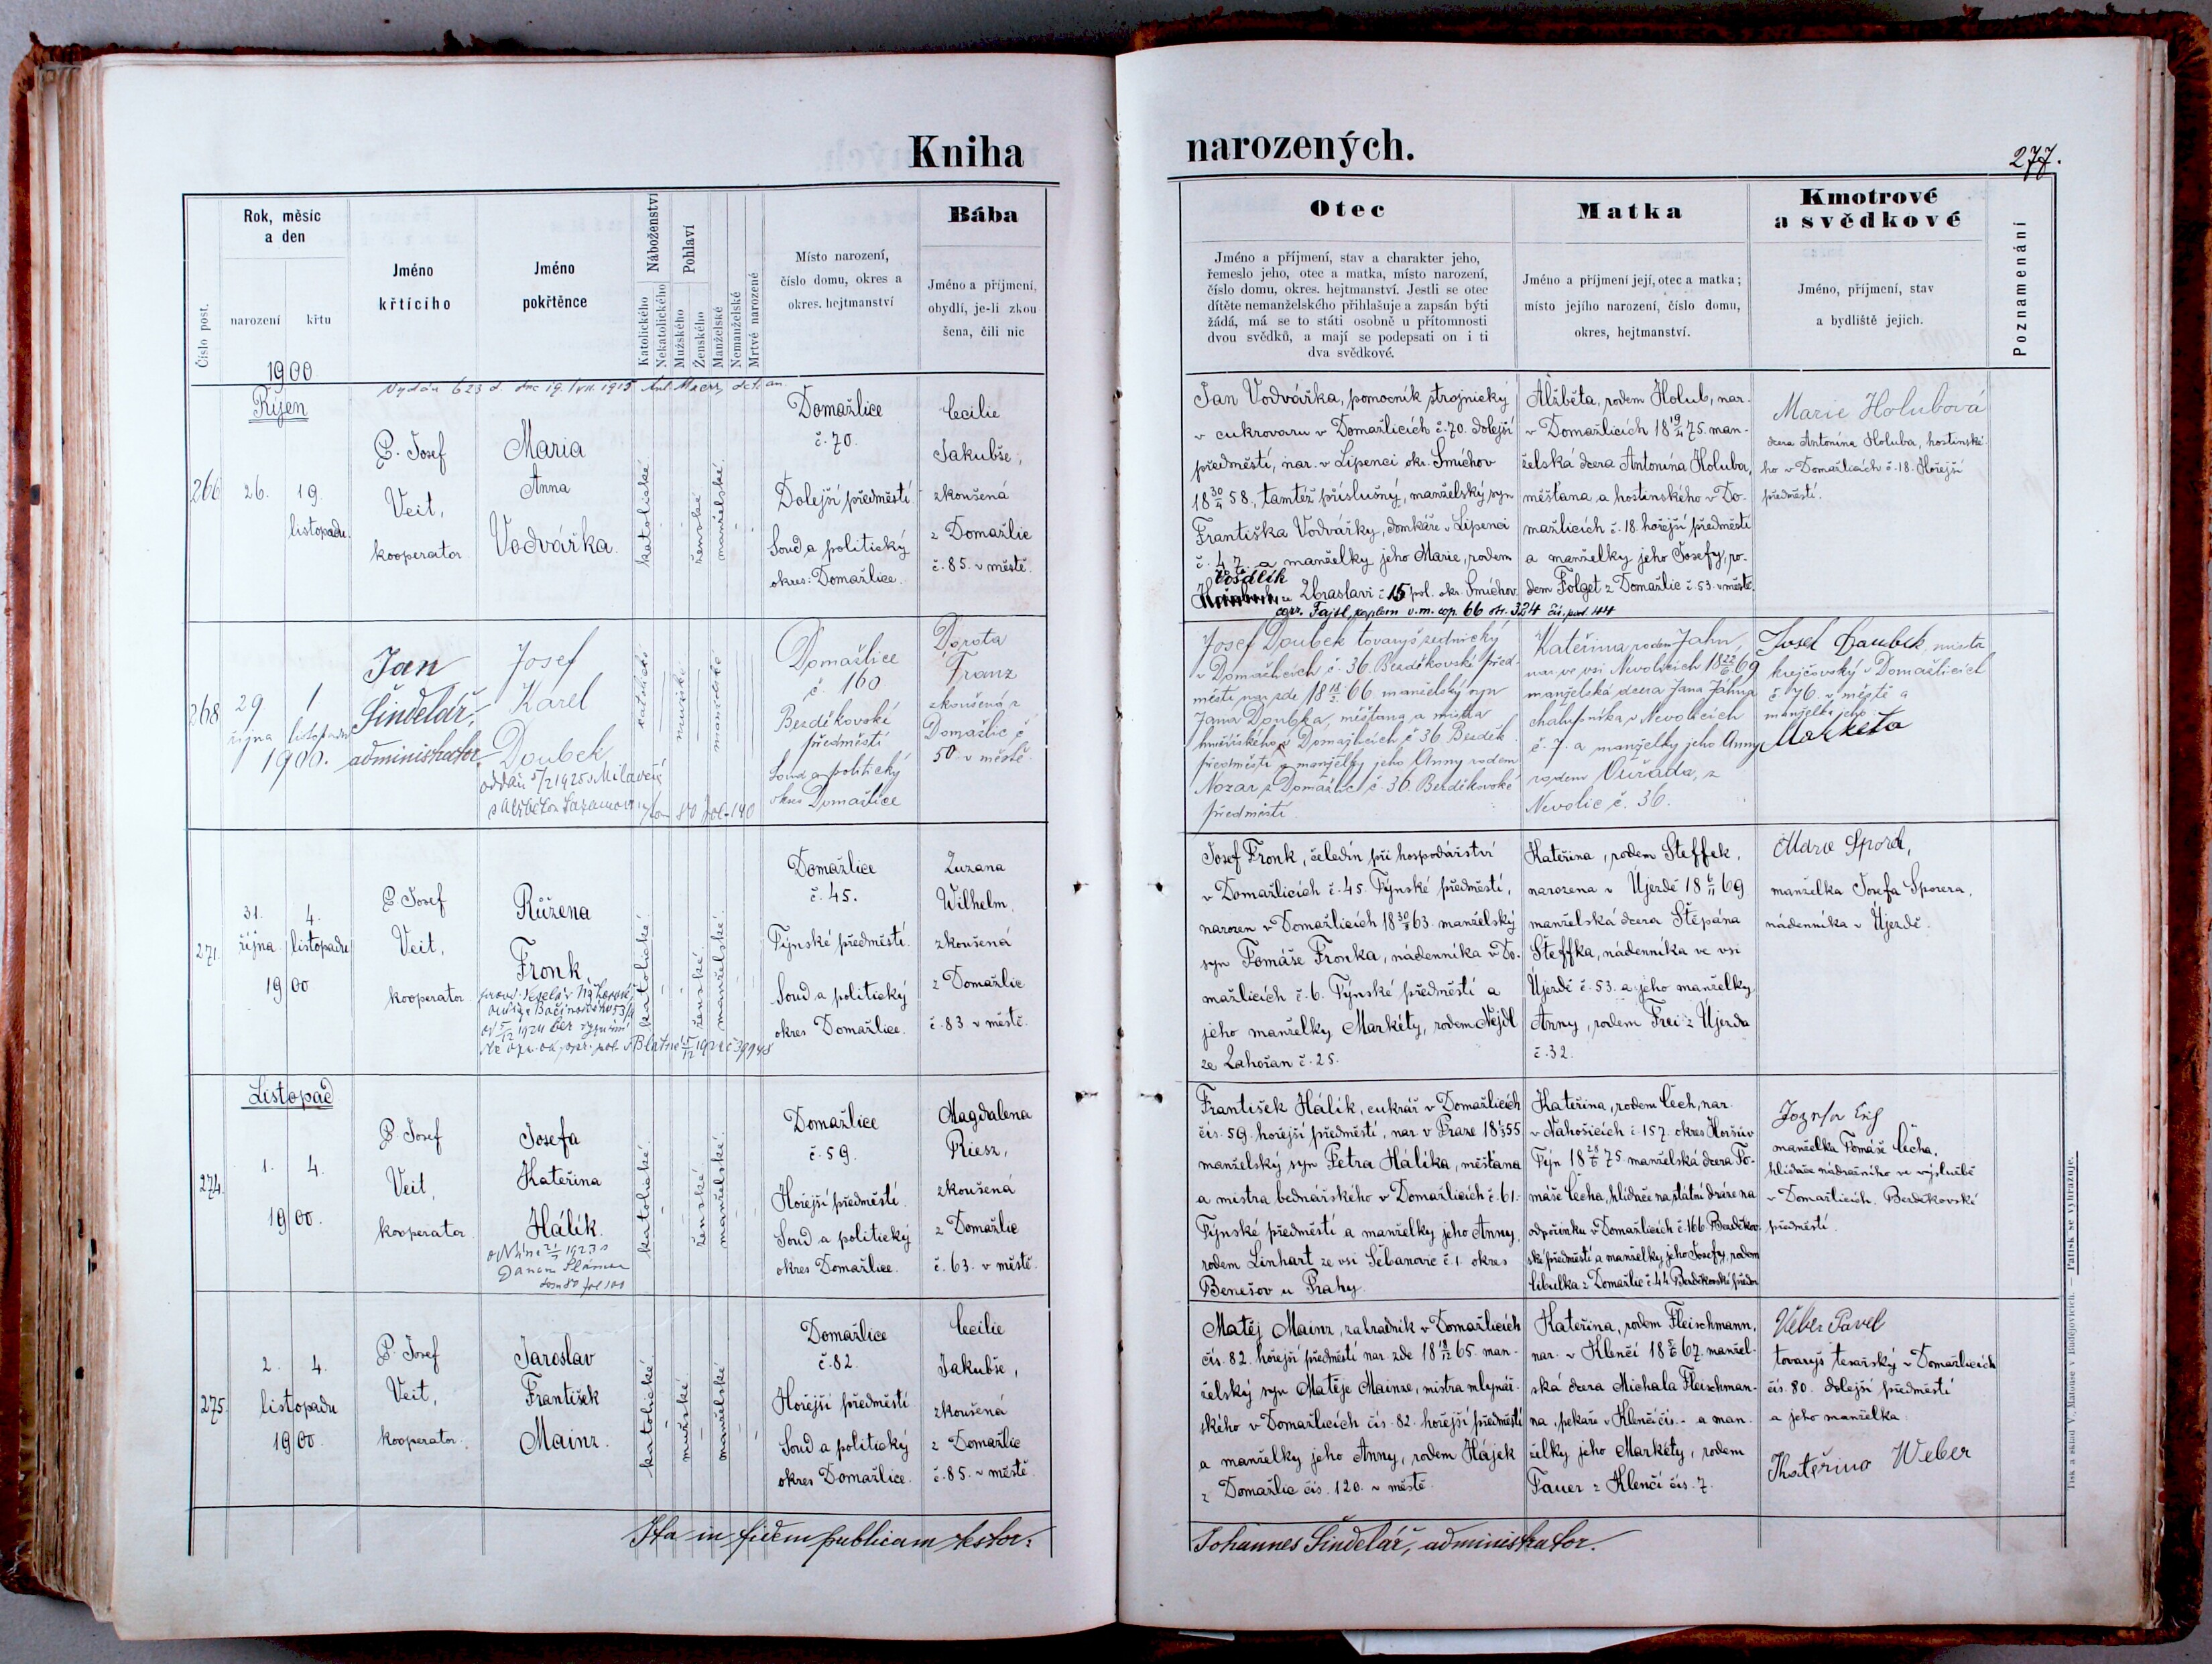 Kniha
narozených.
277.
Číslo post.
Rok, měsíc
a den
narození
křtu
1900
Jméno
křticího
Jméno
pokřtěnce
Náboženství
Katolického
Nekatolického
Pohlaví
Mužského
Ženského
Manželské
Nemanželské
Mrtvě narozené
Místo narození,
číslo domu, okres a
okres. hejtmanství
Bába
Jméno a příjmení,
obydlí, je-li zkou
šena, čili nic
Otec
Jméno a příjmení, stav a charakter jeho,
řemeslo jeho, otec a matka, místo narození,
číslo domu, okres. hejtmanství. Jestli se otec
dítěte nemanželského přihlašuje a zapsán býti
žádá, má se to státi osobně u přítomnosti
dvou svědků, a mají se podepsati on i ti
dva svědkové.
Matka
Jméno a příjmení její, otec a matka;
místo jejího narození, číslo domu,
okres, hejtmanství.
Kmotrové
a svědkové
Jméno, příjmení, stav
a bydliště jejich.
Poznamenání
Říjen
266
26.
19.
listopadu
P. Josef
Veit,
kooperator
Maria
Anna
Vodvářka.
katolické
ženské
manželské
Domažlice
č. 70.
Dolejší předměstí
Soud a politický
okres: Domažlice.
Cecilie
Jakubše,
zkoušená
z Domažlic
č. 85. v městě.
Jan Vodvářka, pomocník strojnický
v cukrovaru v Domažlicích č. 70. dolejší
předměstí, nar. v Lipenci okr. Smíchov
18 30/4 58., tamtéž příslušný, manželský syn
Františka Vodvářky, domkáře v Lipenci
č. 47. a manželky jeho Marie, rodem
ze Zbraslavi č. 15 pol. okr. Smíchov.
Alžběta, rodem Holub, nar.
v Domažlicích 18 19/4 75. man-
želská dcera Antonína Holuba,
měšťana a hostinského v Do-
mažlicích č. 18. hořejší předměstí
a manželky jeho Josefy, ro-
dem Folget z Domažlic č. 53. v městě.
Marie Holubová
dcera Antonína Holuba, hostinské-
ho v Domažlicích č. 18. Hořejší
předměstí.
268
29.
října
1
listopadu
1900.
Jan
Šindelář,
administrator
Josef
Karel
Doubek
katolické
mužské
manželské
Domažlice
č. 160
Bezděkovské
předměstí
Soud a politický
okres Domažlice
Dorota
Franz
zkoušená z
Domažlic č
50. v městě.
Josef Doubek tovaryš zednický
v Domažlicích č. 36. Bezděkovské před-
městí nar. zde 18 18/2 66 manželský syn
Jana Doubka, měšťana a mistra
v Domažlicích č 36 Bezděk.
předměstí a manželky jeho Anny rodem
Nozar z Domažlic č. 36. Bezděkovské
předměstí.
Kateřina, rodem Jahn,
nar. ve vsi Nevolicích 18 22/6 69
manželská dcera Jana Jahna
chalupníka v Nevolicích
č. 7. a manželky jeho Anny
rodem Kuřada, z
Nevolic č. 36.
Josef Doubek, mistr
krejčovský v Domažlicích
č 76. v městě a
manželka jeho
Marketa
271.
31.
října
4.
listopadu
1900
P. Josef
Veit,
kooperator
Růžena
Fronk,
katolické
ženské
manželské
Domažlice
č. 45.
Týnské předměstí.
Soud a politický
okres Domažlice.
Zuzana
Wilhelm,
zkoušená
z Domažlic
č. 83 v městě.
Josef Fronk, čeledín při hospodářství
v Domažlicích č. 45. Týnské předměstí,
narozen v Domažlicích 18 30/8 63. manželský
syn Tomáše Fronka, nádenníka v Do-
mažlicích č. 6. Týnské předměstí a
jeho manželky Markéty, rodem Nejdl
ze Zahořan č. 25.
Kateřina, rodem Steffek,
narozena v Újezdě 18 6/11 69
manželská dcera Štěpána
Šteffka, nádenníka ve vsi
Újezdě č. 53. a jeho manželky
Anny, rodem Frei z Újezda
č. 32.
manželka Josefa Sporera,
nádenníka v Újezdě.
Listopad
274.
1.
4.
1900.
P. Josef
Veit,
kooperator
Josefa
Kateřina
Hálík.
katolické
ženské
manželské
Domažlice
č. 59.
Hořejší předměstí.
Soud a politický
okres Domažlice.
Magdalena
Riesz,
zkoušená
z Domažlic
č. 63. v městě.
František Hálík, cukrář v Domažlicích
čís. 59. hořejší předměstí, nar. v Praze
manželský syn Petra Hálíka, měšťana
a mistra bednářského v Domažlicích č. 61.
Týnské předměstí a manželky jeho Anny,
rodem Linhart ze vsi Šebanovic č. 1. okres
Benešov u Prahy.
Kateřina, rodem Čech, nar.
v Náhošicích č. 157. okres Horšův
Týn 18 28/6 75 manželská dcera To-
máše Čecha, hlídače na státní dráze na
odpočinku v Domažlicích č. 166. Bezděkov-
ské předměstí a manželky jeho Josefy, rodem
Cibulka z Domažlic č. 44 Bezděkovské předm
manželka Tomáše Čecha,
hlídače nádražního ve výslužbě
v Domažlicích. Bezděkovské
předměstí.
275.
2.
4.
listopadu
1900
P. Josef
Veit,
kooperator.
Jaroslav
František
Mainz.
katolické
mužské
manželské
Domažlice
č. 82.
Hořejší předměstí
Soud a politický
okres Domažlice.
Cecilie
Jakubše,
zkoušená
z Domažlic
č. 85. v městě.
Matěj Mainz, zahradník v Domažlicích
čís. 82. hořejší předměstí nar. zde 18 18/12 65. man-
želský syn Matěje Mainze, mistra mlynář-
ského v Domažlicích čís. 82. hořejší předměstí
a manželky jeho Anny, rodem Hájek
z Domažlic čís. 120. v městě.
Kateřina, rodem Fleischmann,
nar. v Klenčí 18 5/6 67. manžel-
ská dcera Michala Fleischman-
na, pekaře v Klenčí čís. - a man-
želky jeho Markéty, rodem
Tauer z Klenčí čís. 7.
Veber Pavel
tovaryš tesařský v Domažlicích
čís. 80. dolejší předměstí
a jeho manželka:
Weber
Ita in fidem publicam testor:
Johannes Šindelář, administrator.
Tisk a sklad V. Matouše v Budějovicích. — Patisk se vyhrazuje.